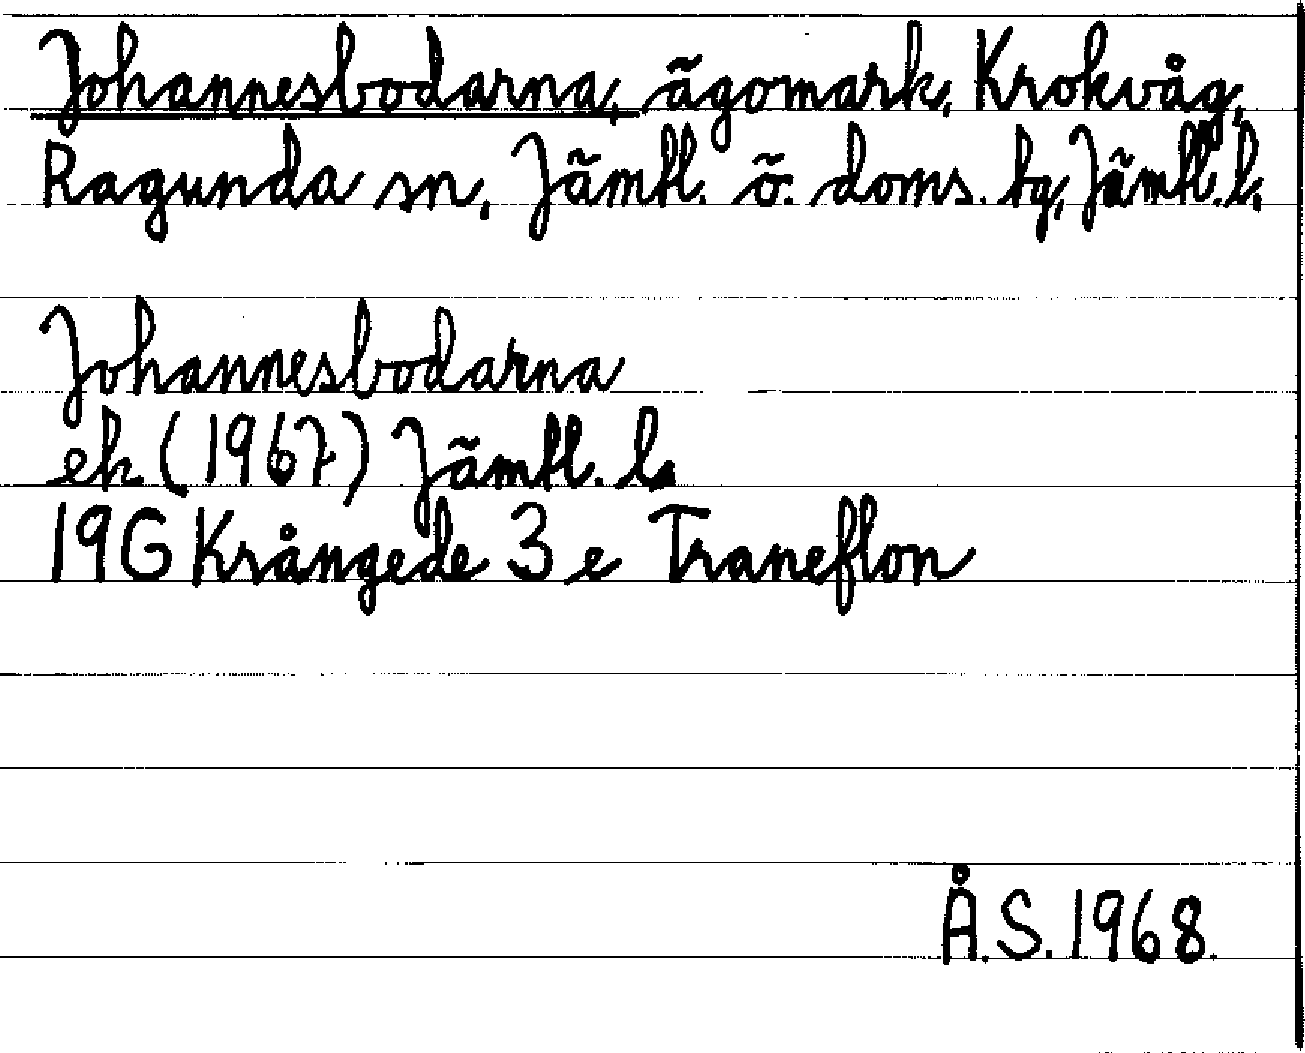 Johannesbodarna, ägomark, Krokvåg,
Ragunda sn, Jämtl. ö. doms. tg, Jämtl. l.
Johannesbodarna
ek (1967) Jämtl. l.
19G Krångede 3 e Traneflon
Å.S. 1968.